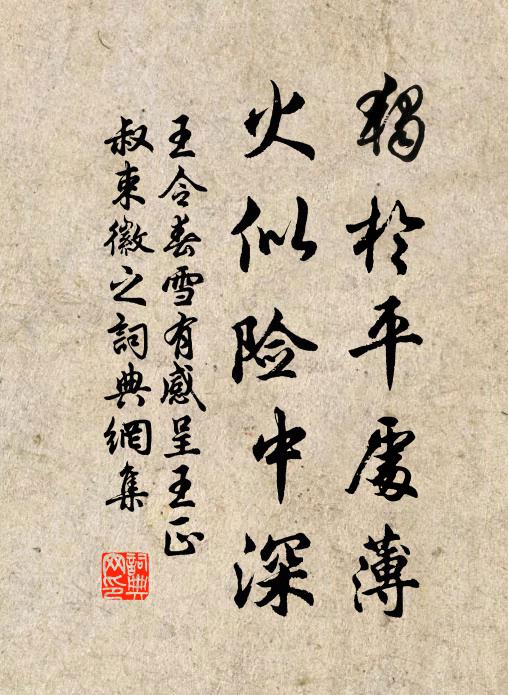 獨於平處薄
火似險中深
王令春雪有感呈王正
叔束徽之詞典網集
詞典網印